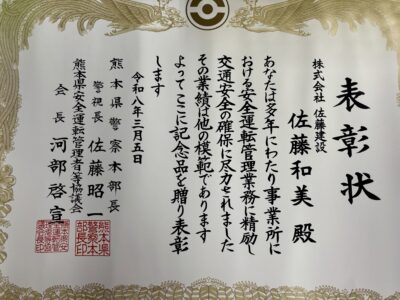 表彰状
株式会社 佐藤建設
佐藤和美殿
あなたは多年にわたり事業所に
おける安全運転管理業務に精励し
交通安全の確保に尽力されました
その業績は他の模範であります
よってここに記念品を贈り表彰
します
令和八年三月五日
熊本県警察本部長
警視長 佐藤昭一
熊本県安全運転管理者等協議会
会長 河部啓宣
熊本県
警察本
部長印